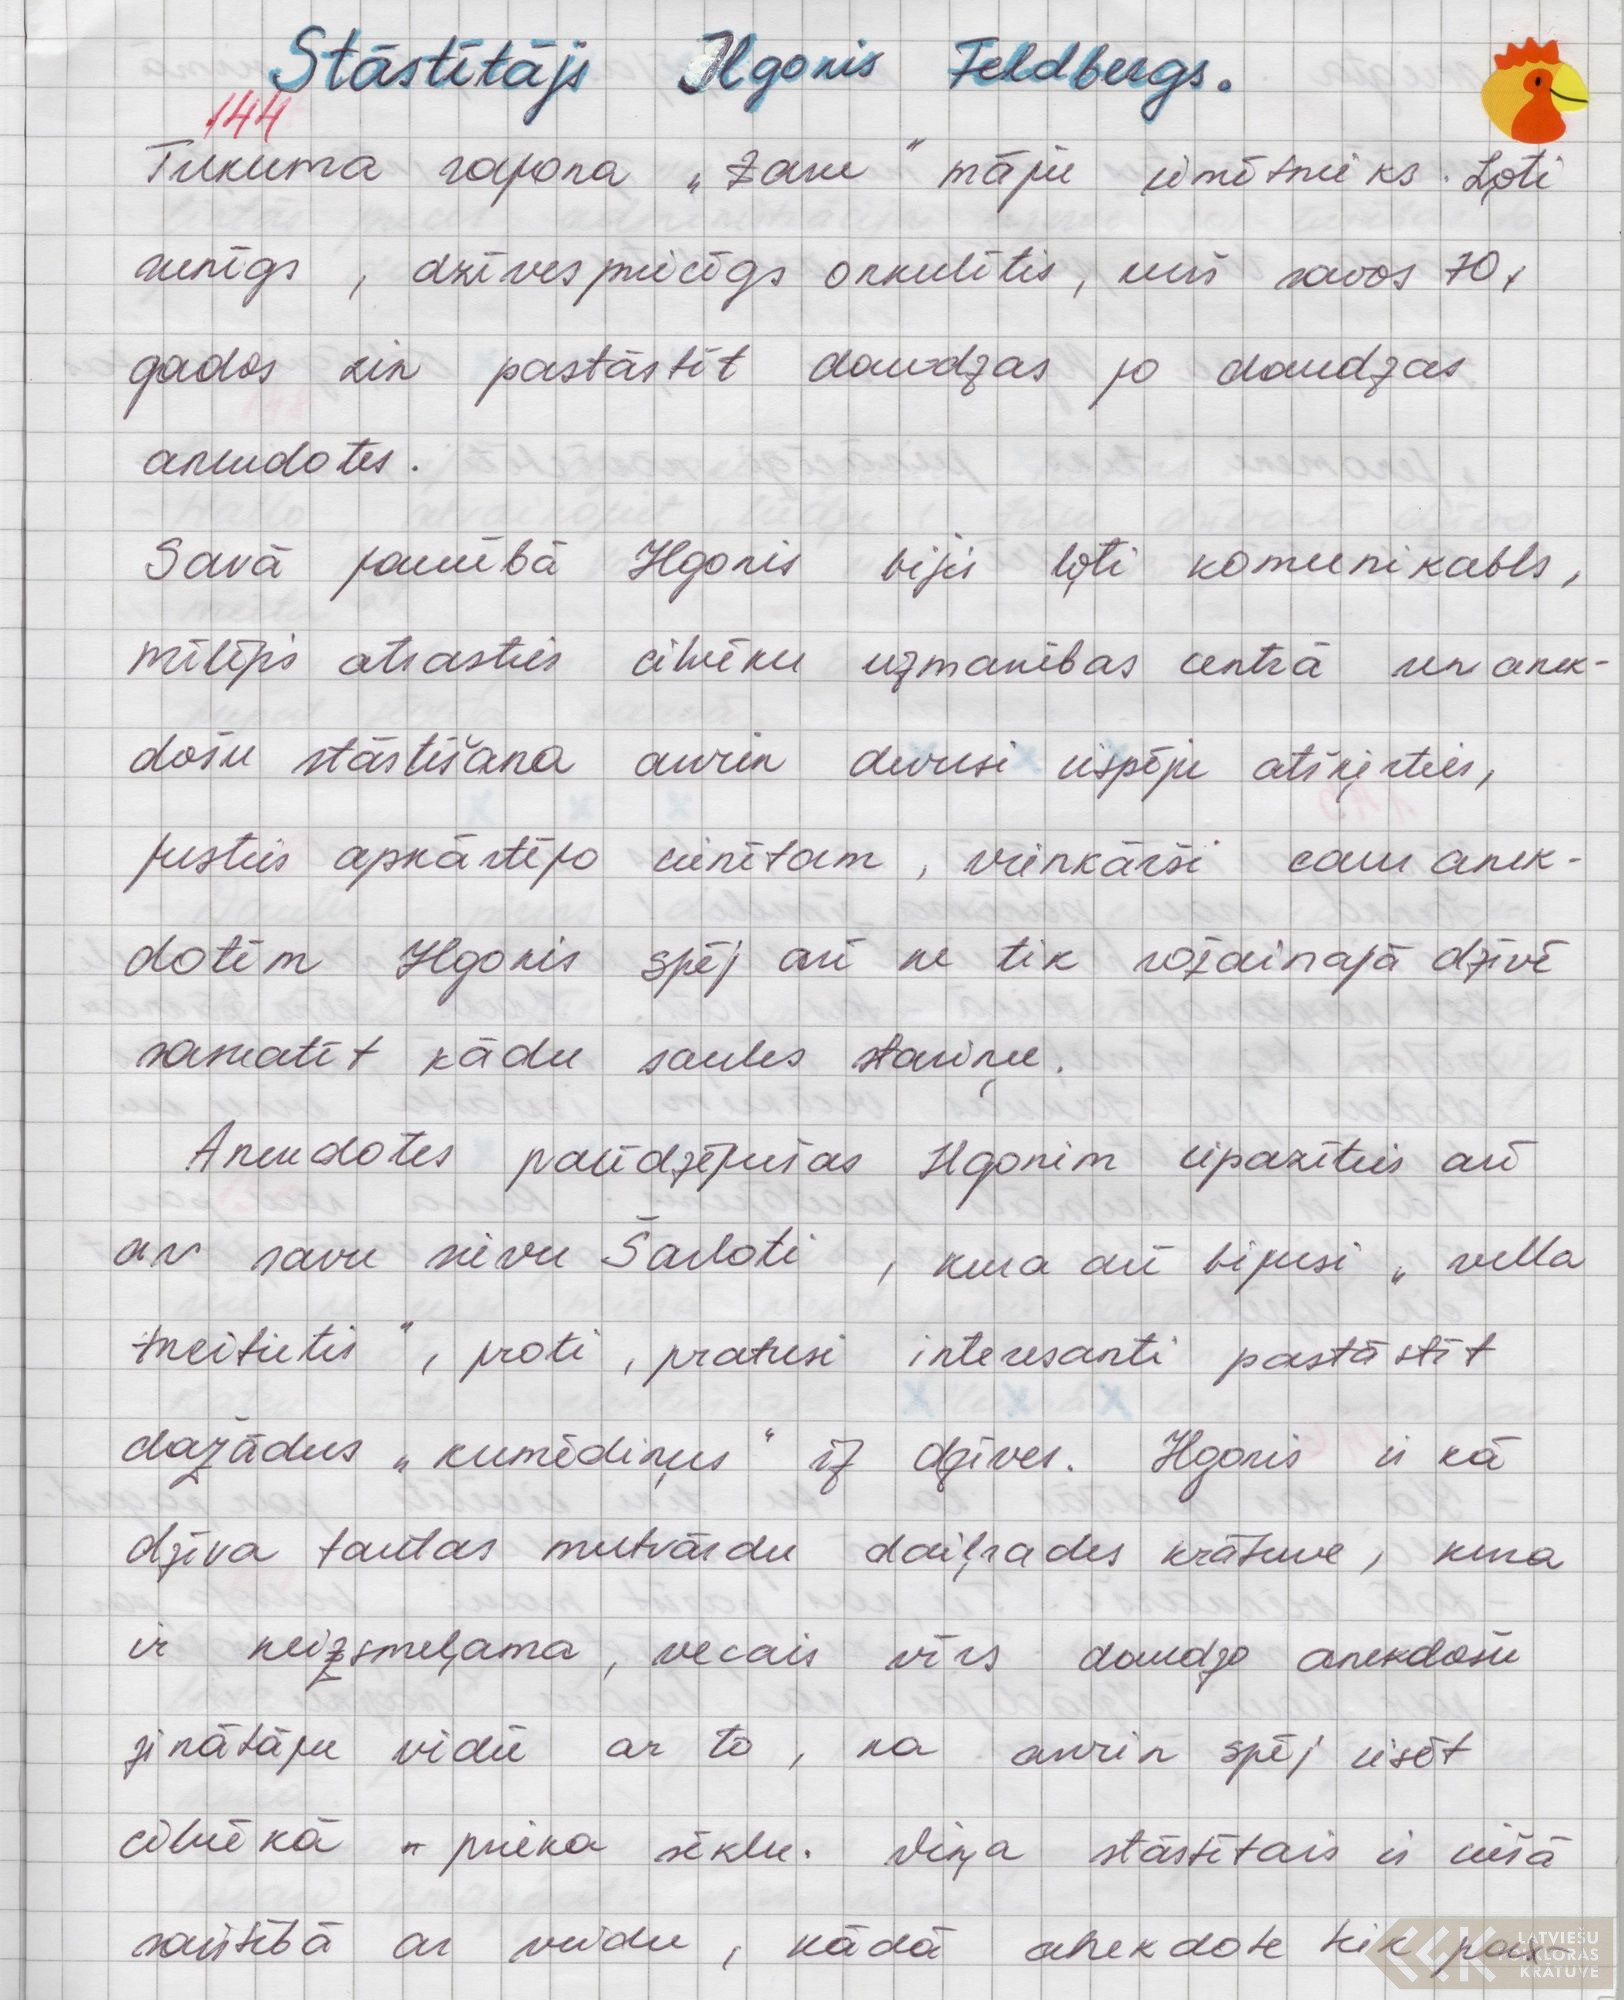 Stāstītājs Ilgonis Feldbergs.
144
Tukuma rajona „Zaru" māju iemītnieks. Ļoti
sirsnīgs, dzīvespriecīgs onkulītis, kurš savos 70.
gados zin pastāstīt daudzas jo daudzas
anekdotes.
Savā jaunībā Ilgonis bijis ļoti komunikabls,
mīlējis atrasties cilvēku uzmanības centrā un anek-
došu stāstīšana arvien devusi iespēju atšķirties,
justies apkārtējo cienītam, vienkārši caur anek-
dotēm Ilgonis spēj arī ne tik rožainajā dzīvē
saskatīt kādu saules stariņu.
Anekdotes palīdzējušas Ilgonim iepazīties arī
ar savu sievu Šarloti, kura arī bijusi „vella
meitietis", proti, pratusi interesanti pastāstīt
dažādus „kumēdiņus" iz dzīves. Ilgonis ir kā
dzīva tautas mutvārdu daiļrades krātuve, kura
ir neizsmeļama, vecais vīrs daudzo anekdošu
zinātāju vidū ar to, ka arvien spēj iesēt
cilvēkā - prieka sēklu. Viņa stāstītais ir ciešā
saistībā ar veidu, kādā anekdote tiek pas-
LATVIEŠU
FOLKLORAS
KRĀTUVE